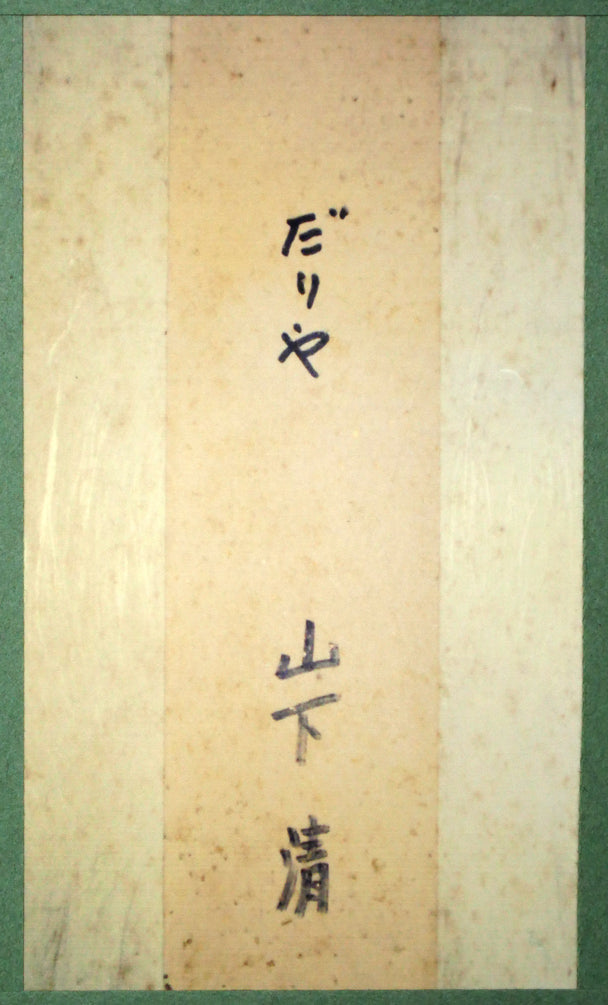 だりや
山下 清